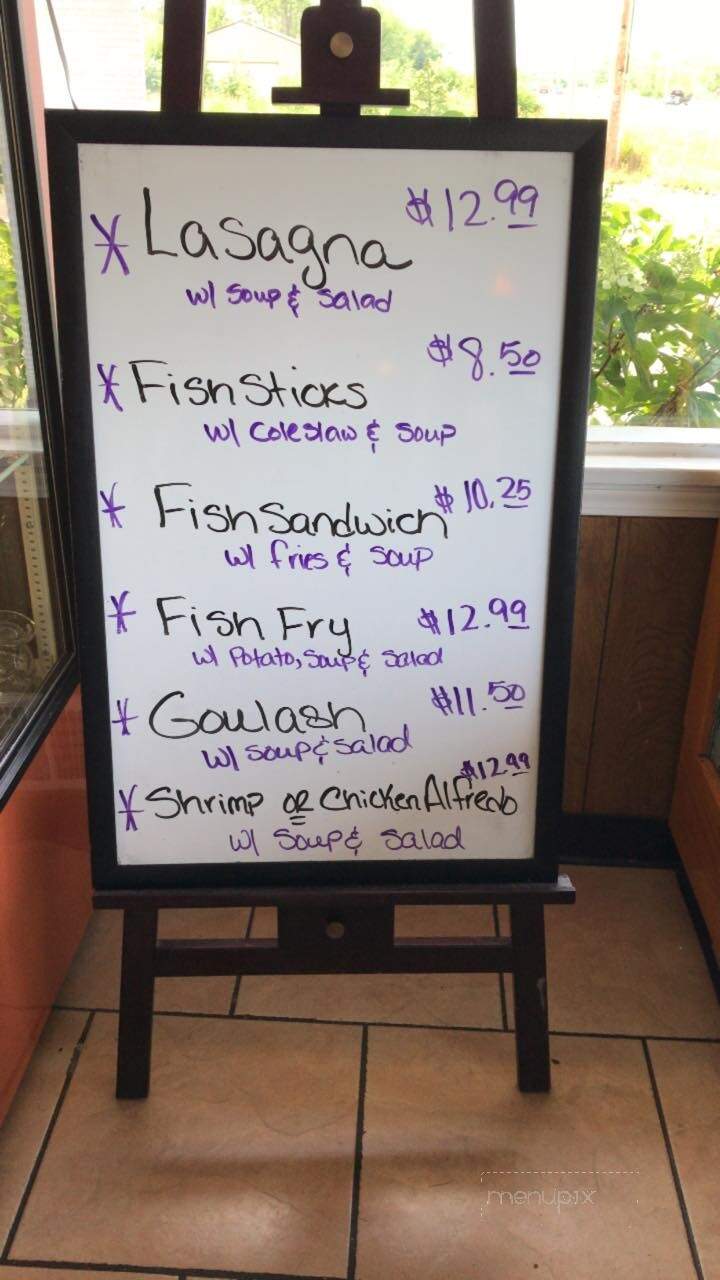 * Lasagna $12.99
w/ Soup & Salad
* Fish Sticks $8.50
w/ Coleslaw & Soup
* Fish Sandwich $10.25
w/ fries & Soup
* Fish Fry $12.99
w/ Potato, Soup & Salad
* Goulash $11.50
w/ Soup & Salad
* Shrimp OR Chicken Alfredo $12.99
w/ Soup & Salad
menupix